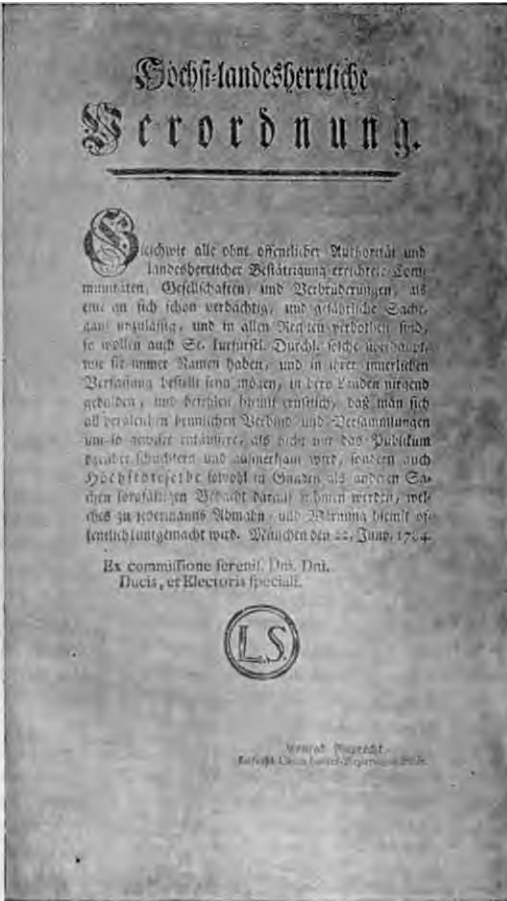 Höchst-landesherrliche
Verordnung.
Gleichwie alle ohne öffentlicher Authorität und
landesherrlicher Bestättigung errichtete Com-
munitäten, Gesellschaften, und Verbrüderungen, als
eine an sich schon verdächtig, und gefährliche Sache,
ganz unzulässig, und in allen Rechten verbothen sind,
so wollen auch Se. kurfürstl. Durchl. solche überhaupt,
wie sie immer Namen haben, und in ihrer innerlichen
Verfassung bestellt seyn mögen, in dero Landen nirgend
gedulden, und befehlen hiemit ernstlich, daß man sich
all dergleichen heimlichen Verbind- und Versammlungen
um so gewisser entäußere, als nicht nur das Publikum
darüber schüchtern und aufmerksam wird, sondern auch
Höchstdieselbe sowohl in Gnaden als anderen Sa-
chen sorgfältigen Bedacht darauf nehmen werden, wel-
ches zu jedermanns Abmahn- und Warnung hiemit öf-
fentlich kuntgemacht wird. München den 22. Juny. 1784.
Ex commissione serenis. Dni. Dni.
Ducis, et Electoris speciali.
L.S.